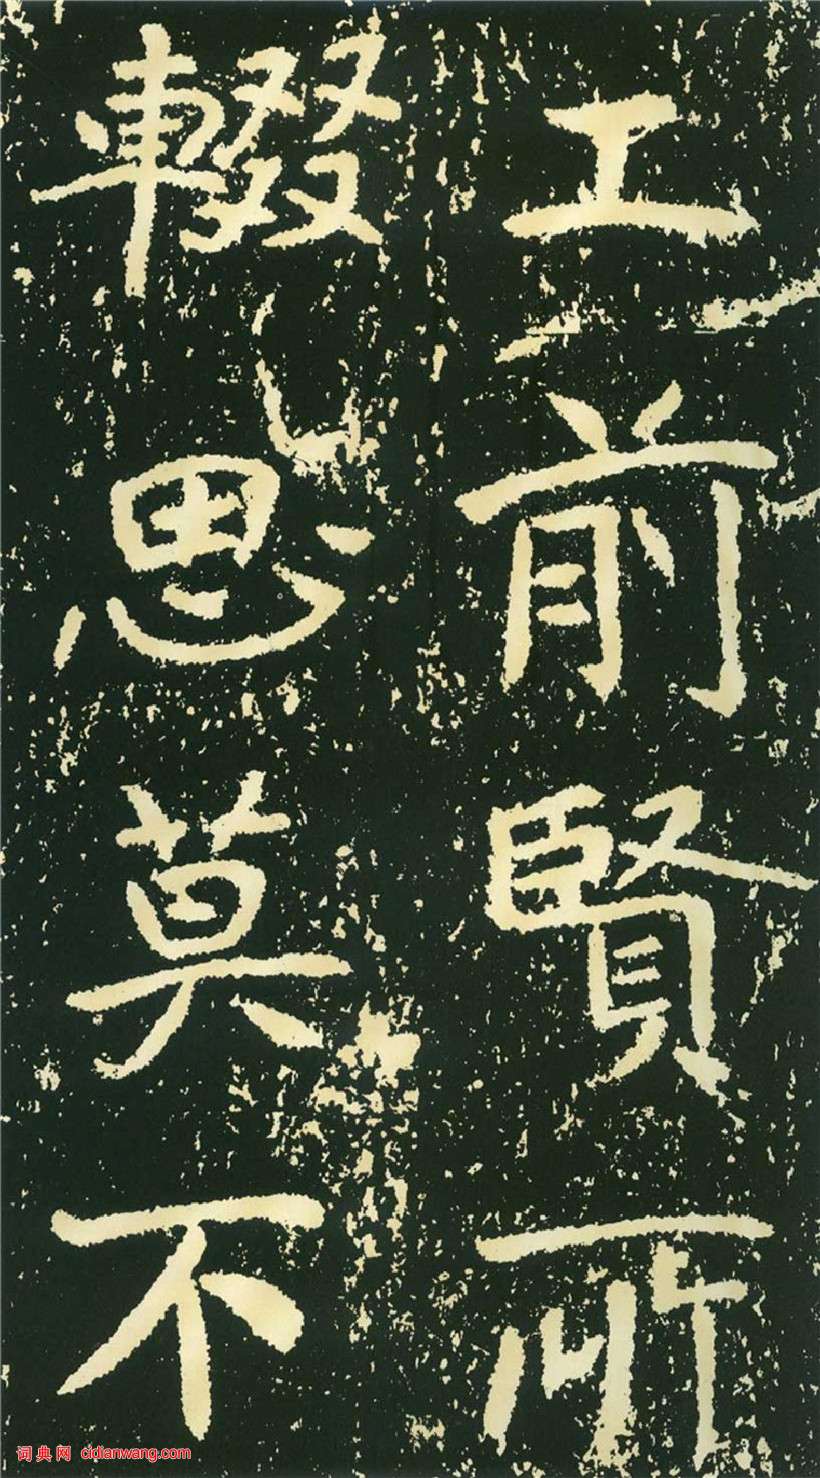 工前賢所
輟思莫不
词典网 cidianwang.com